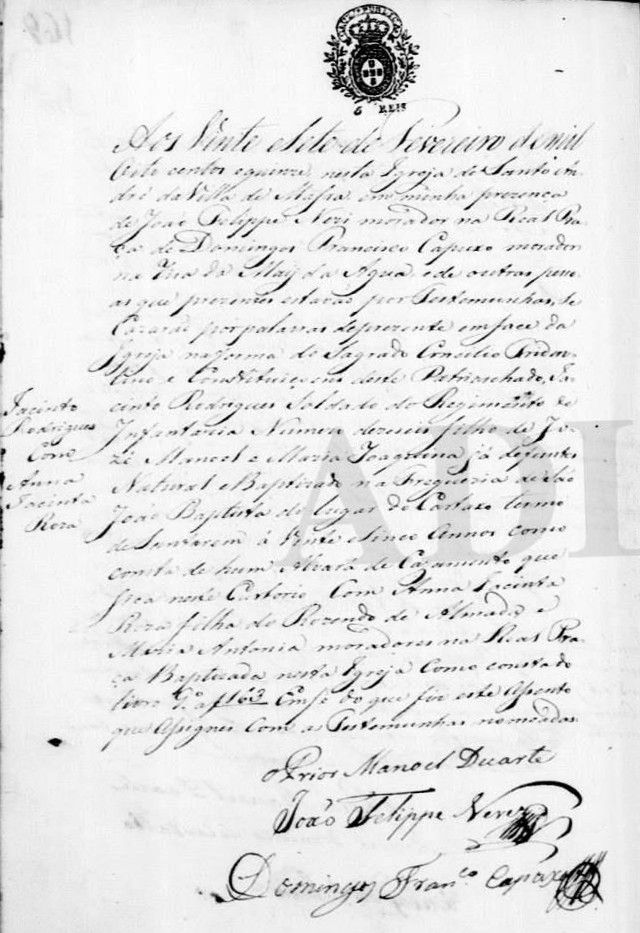 169
CAUSA PUBLICA
6 REIS
Aos Vinte e Sete de Fevereiro de mil
Oito centos e quinze, nesta Igreja de Santo An
dré da Villa de Mafra, em minha prezença
de João Felippe Neri morador na Real Pra
ça de Domingos Francisco Capuxo morador
na Rua da Maij da Agua, e de outras pesso
as que prezentes estavão por Testemunhas, se
Cazarão por palavras de prezente em face da
Igreja na forma do Sagrado Concilio Triden
tino, e Constituiçoens deste Patriarchado, Ja
cinto Rodrigues Soldado do Regimento de
Infantaria Numero dezeseis filho de Jo
zé Manoel e Maria Joaquina já defuntos
Natural e Baptizado na Freguezia de São
João Baptista do lugar do Cartaxo termo
de Santarem á Vinte e sinco Annos como
consta de hum Alvará de Cazamento que
fica neste Cartorio. Com Anna Jacinta
Roza filha de Rozendo de Almada e
Maria Antonia moradores na Real Pra
ça Baptizada nesta Igreja Como consta do
livro 9.º a f 163 Em fé do que fiz este Assento
que Assignei Com as Testemunhas nomeadas
Jacinto
Rodrigues
Com
Anna
Jacinta
Roza
O Prior Manoel Duarte
João Felippe Nerez
Domingos Fran.co Capuxo
ADL